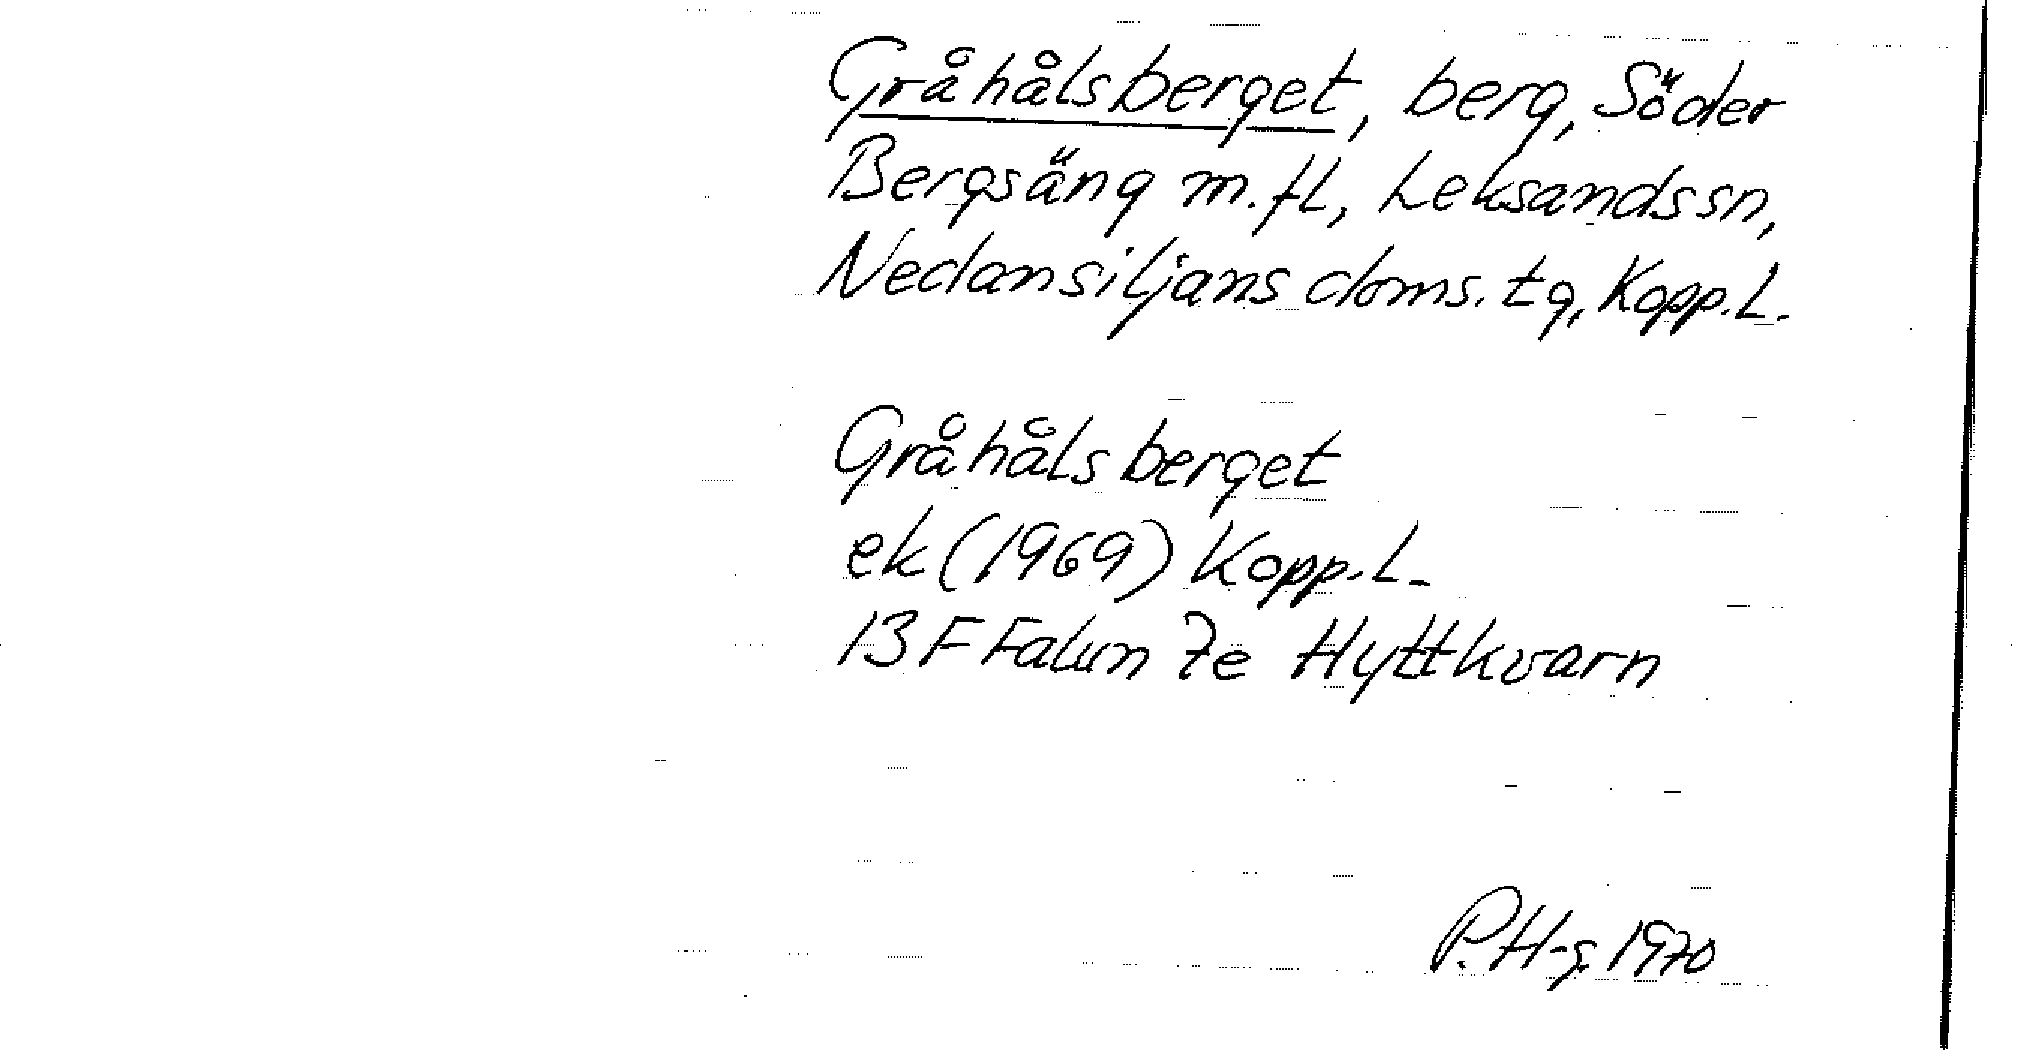 Gråhålsberget, berg, Söder
Bergsäng m.fl, Leksands sn,
Nedansiljans doms. tg, Kopp.L.
Gråhålsberget
ek (1969) Kopp.L.
13 F Falun 7e Hyttkvarn
P.H-g. 1970